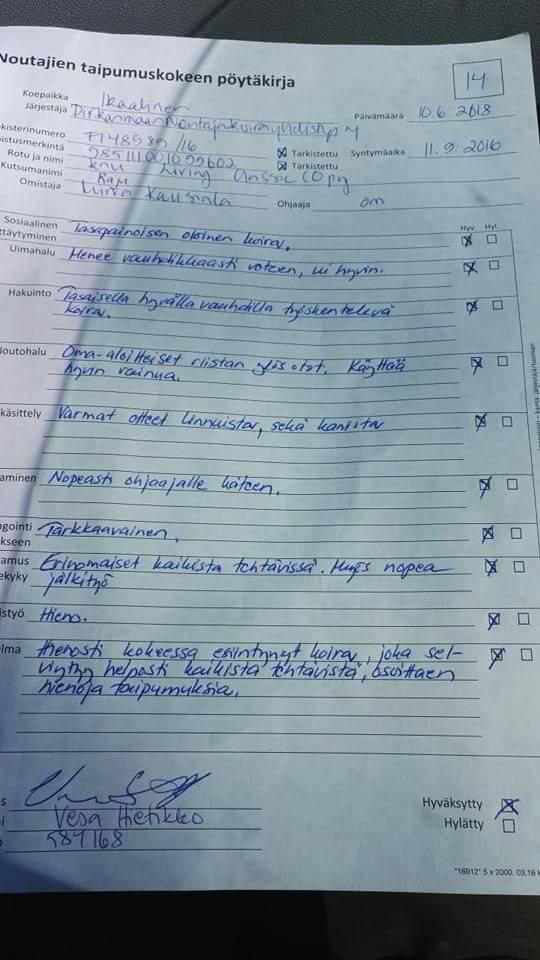 Noutajien taipumuskokeen pöytäkirja
14
Koepaikka Ikaalinen
Järjestäjä Pirkanmaan Noutajakoirayhdistys ry Päivämäärä 10.6.2018
kisterinumero FI48989/16 Tarkistettu Syntymäaika 11.9.2016
istusmerkintä 985111001099602 Tarkistettu
Rotu ja nimi knu Living Classic Copy
Kutsumanimi
Omistaja Kaussala Ohjaaja om
Hyv. Hyl.
Sosiaalinen Tasapainoisen oloinen koira.
ttäytyminen
Uimahalu Menee vauhdikkaasti veteen, ui hyvin.
Hakuinto Tasaisella hyvällä vauhdilla työskentelevä
koira.
Noutohalu Oma-aloitteiset riistan ylös otot. Käyttää
hyvin vainua.
käsittely Varmat otteet linnuista, sekä kanista
aminen Nopeasti ohjaajalle käteen.
agointi Tarkkaavainen.
kseen
amus Erinomaiset kaikista tehtävissä. Myös nopea
ekyky jälkityö
istyö Hieno.
elma Hienosti kokeessa esiintynyt koira, joka sel-
viytyy helposti kaikista tehtävistä, osoittaen
hienoja taipumuksia.
Vesa Hietikko
589168
Hyväksytty
Hylätty
"16912" 5 x 2000. 03.16